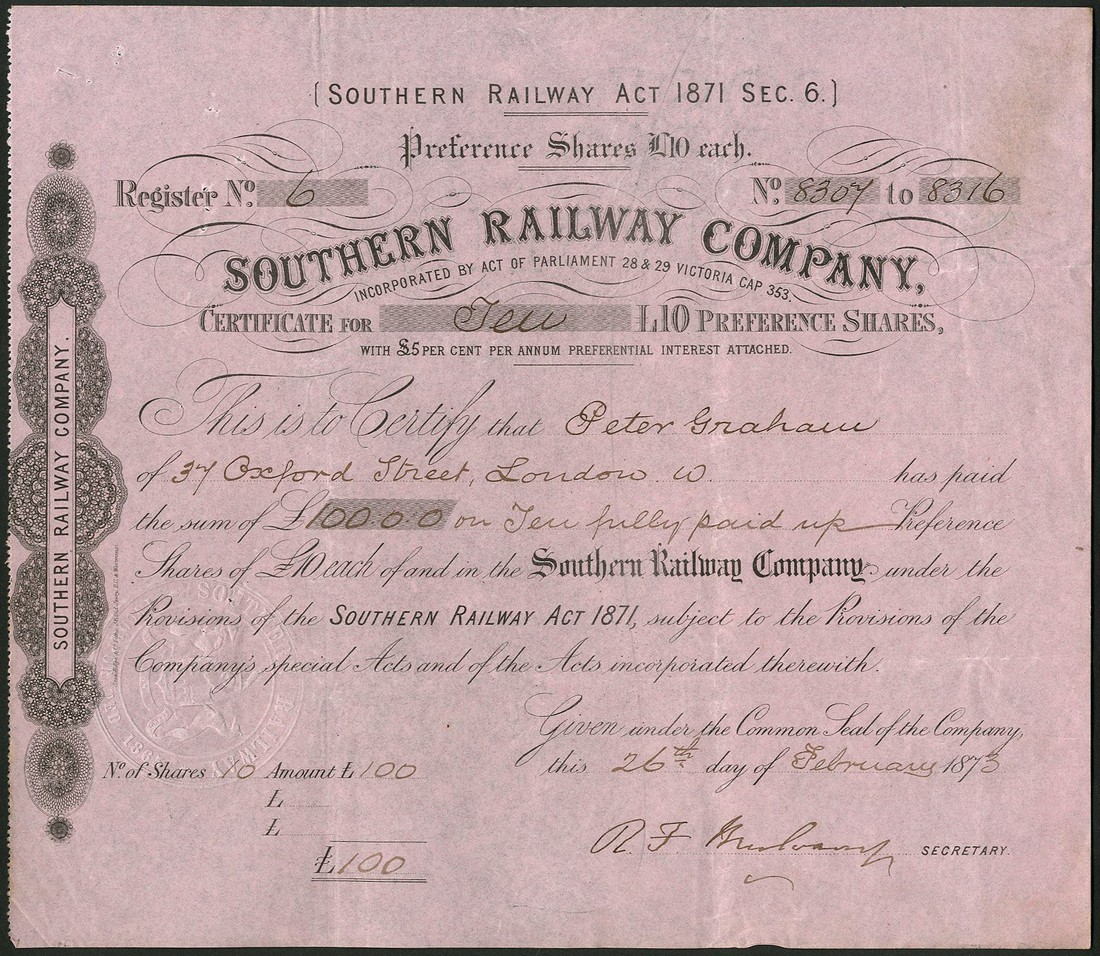 (SOUTHERN RAILWAY ACT 1871 SEC. 6.)
Preference Shares £10 each.
Register No. 6 No. 8307 to 8316
SOUTHERN RAILWAY COMPANY,
INCORPORATED BY ACT OF PARLIAMENT 28 & 29 VICTORIA CAP 353.
CERTIFICATE FOR Ten £10 PREFERENCE SHARES,
WITH £5 PER CENT PER ANNUM PREFERENTIAL INTEREST ATTACHED.
This is to Certify that Peter Graham
of 37 Oxford Street, London W. has paid
the sum of £100.0.0 on Ten fully paid up Preference
Shares of £10 each of and in the Southern Railway Company under the
Provisions of the SOUTHERN RAILWAY ACT 1871, subject to the Provisions of the
Company's special Acts and of the Acts incorporated therewith.
Given under the Common Seal of the Company,
this 26th day of February 1873
No. of Shares 10 Amount £100
£
£
£100
R. F. SECRETARY.
SOUTHERN RAILWAY COMPANY.